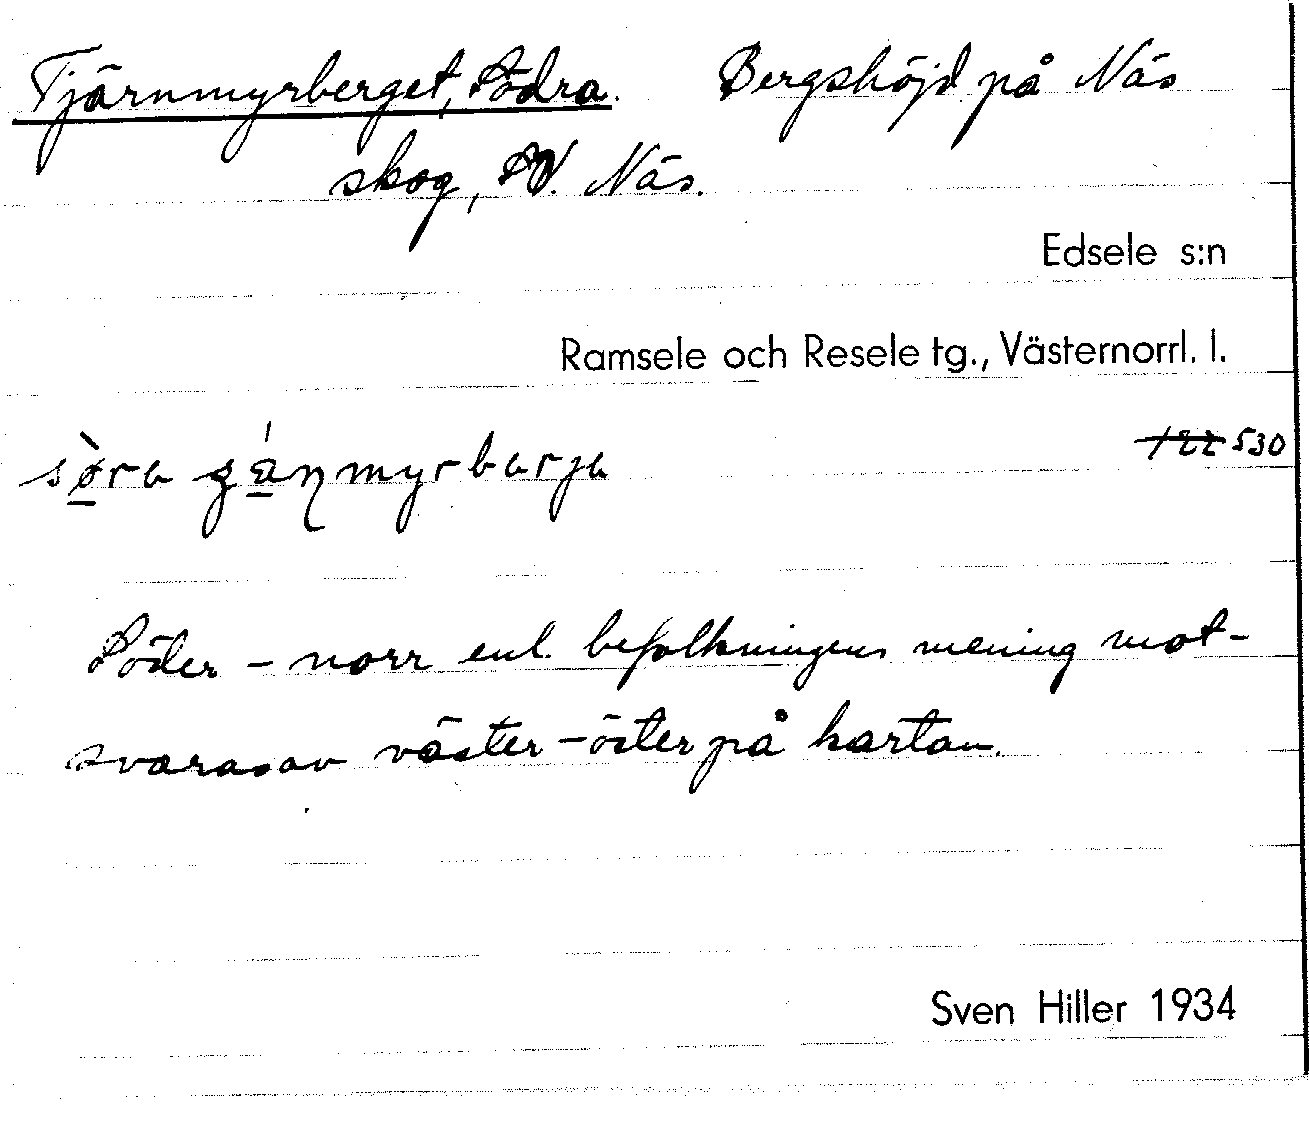 Tjärnmyrberget, Södra. Bergshöjd på Näs
skog, SV. Näs.
Edsele s:n
Ramsele och Resele tg., Västernorrl. l.
122 530
Söder - norr enl. befolkningens mening mot-
svaras av väster - öster på kartan.
Sven Hiller 1934